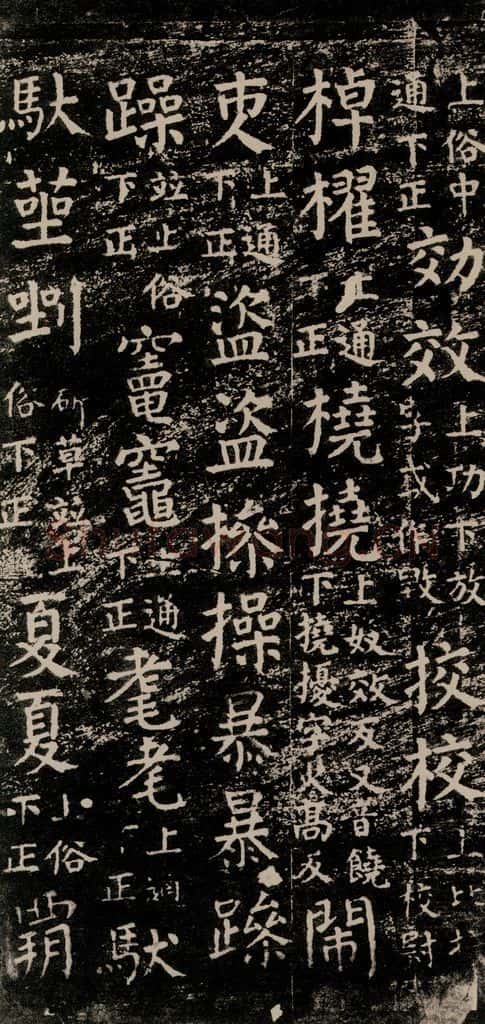 上俗中通下正効效上功下放字或作敩挍校上比扌下校尉
棹櫂上通下正橈撓上奴效反又音饒下撓擾字火高反閙
吏上通下正盗盜摻操暴暴蹂
躁並上俗下正竃竈上通下正耄耄上通下正馱
馱莝剉斫草剉上俗下正夏夏上俗下正